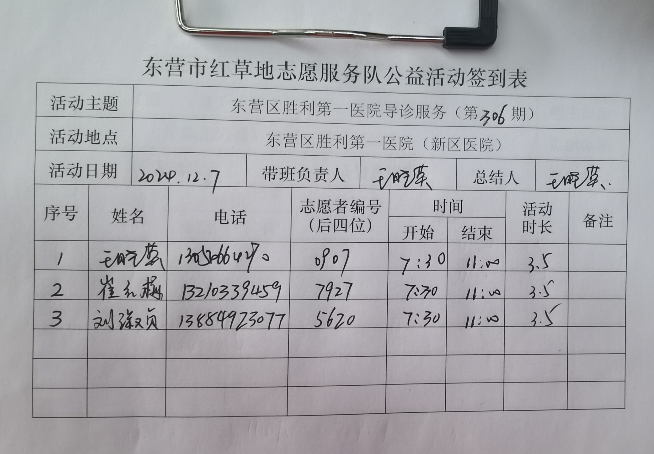 东营市红草地志愿服务队公益活动签到表
活动主题 东营区胜利第一医院导诊服务（第306期）
活动地点 东营区胜利第一医院（新区医院）
活动日期 2024.12.7 带班负责人 王晓燕 总结人 王晓燕
序号 姓名 电话 志愿者编号（后四位） 时间 开始 结束 活动时长 备注
1 王晓燕 0907 7:30 11:00 3.5
2 崔红梅 13210339459 7927 7:30 11:00 3.5
3 刘淑贞 13884923077 5620 7:30 11:00 3.5